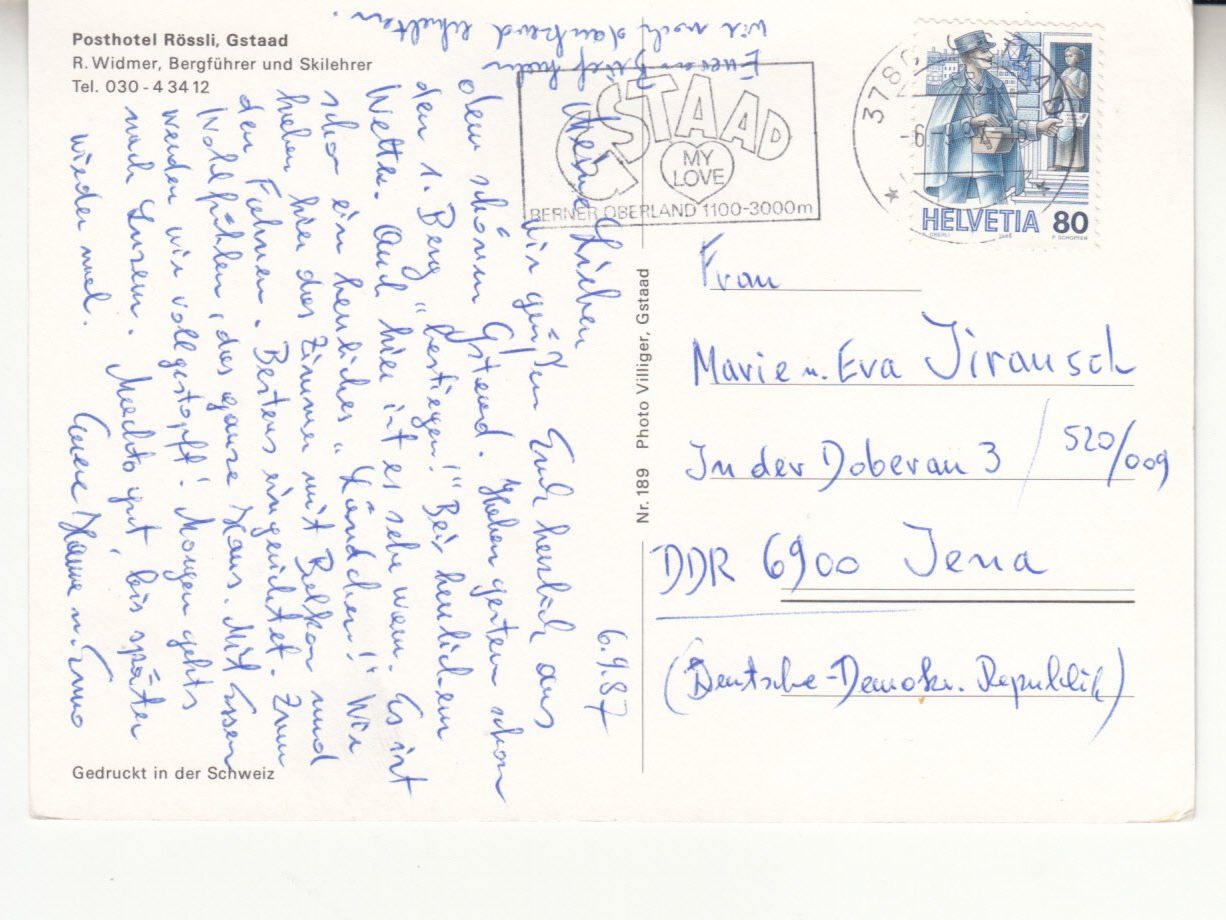 Posthotel Rössli, Gstaad
R. Widmer, Bergführer und Skilehrer
Tel. 030 - 4 34 12
GSTAAD
MY
LOVE
BERNER OBERLAND 1100-3000m
3780 GSTAAD
HELVETIA 80
6.9.87
Meine Lieben
wir grüßen Euch herzlich aus
dem schönen Gstaad. Haben gestern schon
den 1. Berg "bestiegen!" Bei herrlichem
Wetter. Auch hier ist es sehr warm. Es ist
schon ein herrliches "Ländchen!" Wir
haben hier das Zimmer mit Balkon und
den Fahnen. Bestens eingerichtet. Zum
Wohlfühlen, das ganze Haus. Mit Essen
werden wir vollgestopft! Morgen gehts
nach Luzern. Machts gut, bis später
wieder mal.
Eure Hanne u. Enno
Eueren Brief haben
wir noch dankend erhalten.
Nr. 189 Photo Villiger, Gstaad
Frau
Marie u. Eva Jirausch
In der Doberau 3 / 520/009
DDR 6900 Jena
(Deutsche-Demokr. Republik)
Gedruckt in der Schweiz